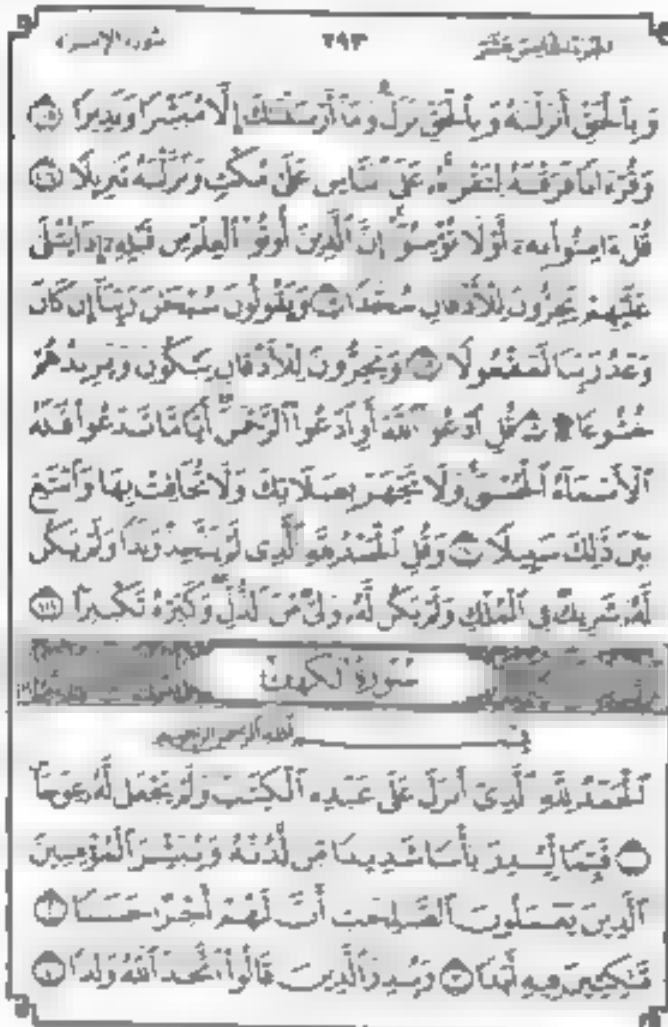 الجزء الخامس عشر ٢٩٣ سورة الإسراء
وَبِالْحَقِّ أَنزَلْنَٰهُ وَبِالْحَقِّ نَزَلَ ۗ وَمَا أَرْسَلْنَٰكَ إِلَّا مُبَشِّرًا وَنَذِيرًا ١٠٥
وَقُرْءَانًا فَرَقْنَٰهُ لِتَقْرَأَهُۥ عَلَى ٱلنَّاسِ عَلَىٰ مُكْثٍ وَنَزَّلْنَٰهُ تَنزِيلًا ١٠٦
قُلْ ءَامِنُوا۟ بِهِۦٓ أَوْ لَا تُؤْمِنُوٓا۟ ۚ إِنَّ ٱلَّذِينَ أُوتُوا۟ ٱلْعِلْمَ مِن قَبْلِهِۦٓ إِذَا يُتْلَىٰ
عَلَيْهِمْ يَخِرُّونَ لِلْأَذْقَانِ سُجَّدًا ١٠٧ وَيَقُولُونَ سُبْحَٰنَ رَبِّنَآ إِن كَانَ
وَعْدُ رَبِّنَا لَمَفْعُولًا ١٠٨ وَيَخِرُّونَ لِلْأَذْقَانِ يَبْكُونَ وَيَزِيدُهُمْ
خُشُوعًا ۩ ١٠٩ قُلِ ٱدْعُوا۟ ٱللَّهَ أَوِ ٱدْعُوا۟ ٱلرَّحْمَٰنَ ۖ أَيًّا مَّا تَدْعُوا۟ فَلَهُ
ٱلْأَسْمَآءُ ٱلْحُسْنَىٰ ۚ وَلَا تَجْهَرْ بِصَلَاتِكَ وَلَا تُخَافِتْ بِهَا وَٱبْتَغِ
بَيْنَ ذَٰلِكَ سَبِيلًا ١١٠ وَقُلِ ٱلْحَمْدُ لِلَّهِ ٱلَّذِى لَمْ يَتَّخِذْ وَلَدًا وَلَمْ يَكُن
لَّهُۥ شَرِيكٌ فِى ٱلْمُلْكِ وَلَمْ يَكُن لَّهُۥ وَلِىٌّ مِّنَ ٱلذُّلِّ ۖ وَكَبِّرْهُ تَكْبِيرًۢا ١١١
سُورَةُ الكَهْفِ
بِسْمِ ٱللَّهِ ٱلرَّحْمَٰنِ ٱلرَّحِيمِ
ٱلْحَمْدُ لِلَّهِ ٱلَّذِىٓ أَنزَلَ عَلَىٰ عَبْدِهِ ٱلْكِتَٰبَ وَلَمْ يَجْعَل لَّهُۥ عِوَجَا
١ قَيِّمًا لِّيُنذِرَ بَأْسًا شَدِيدًا مِّن لَّدُنْهُ وَيُبَشِّرَ ٱلْمُؤْمِنِينَ
ٱلَّذِينَ يَعْمَلُونَ ٱلصَّٰلِحَٰتِ أَنَّ لَهُمْ أَجْرًا حَسَنًا ٢
مَّٰكِثِينَ فِيهِ أَبَدًا ٣ وَيُنذِرَ ٱلَّذِينَ قَالُوا۟ ٱتَّخَذَ ٱللَّهُ وَلَدًا ٤